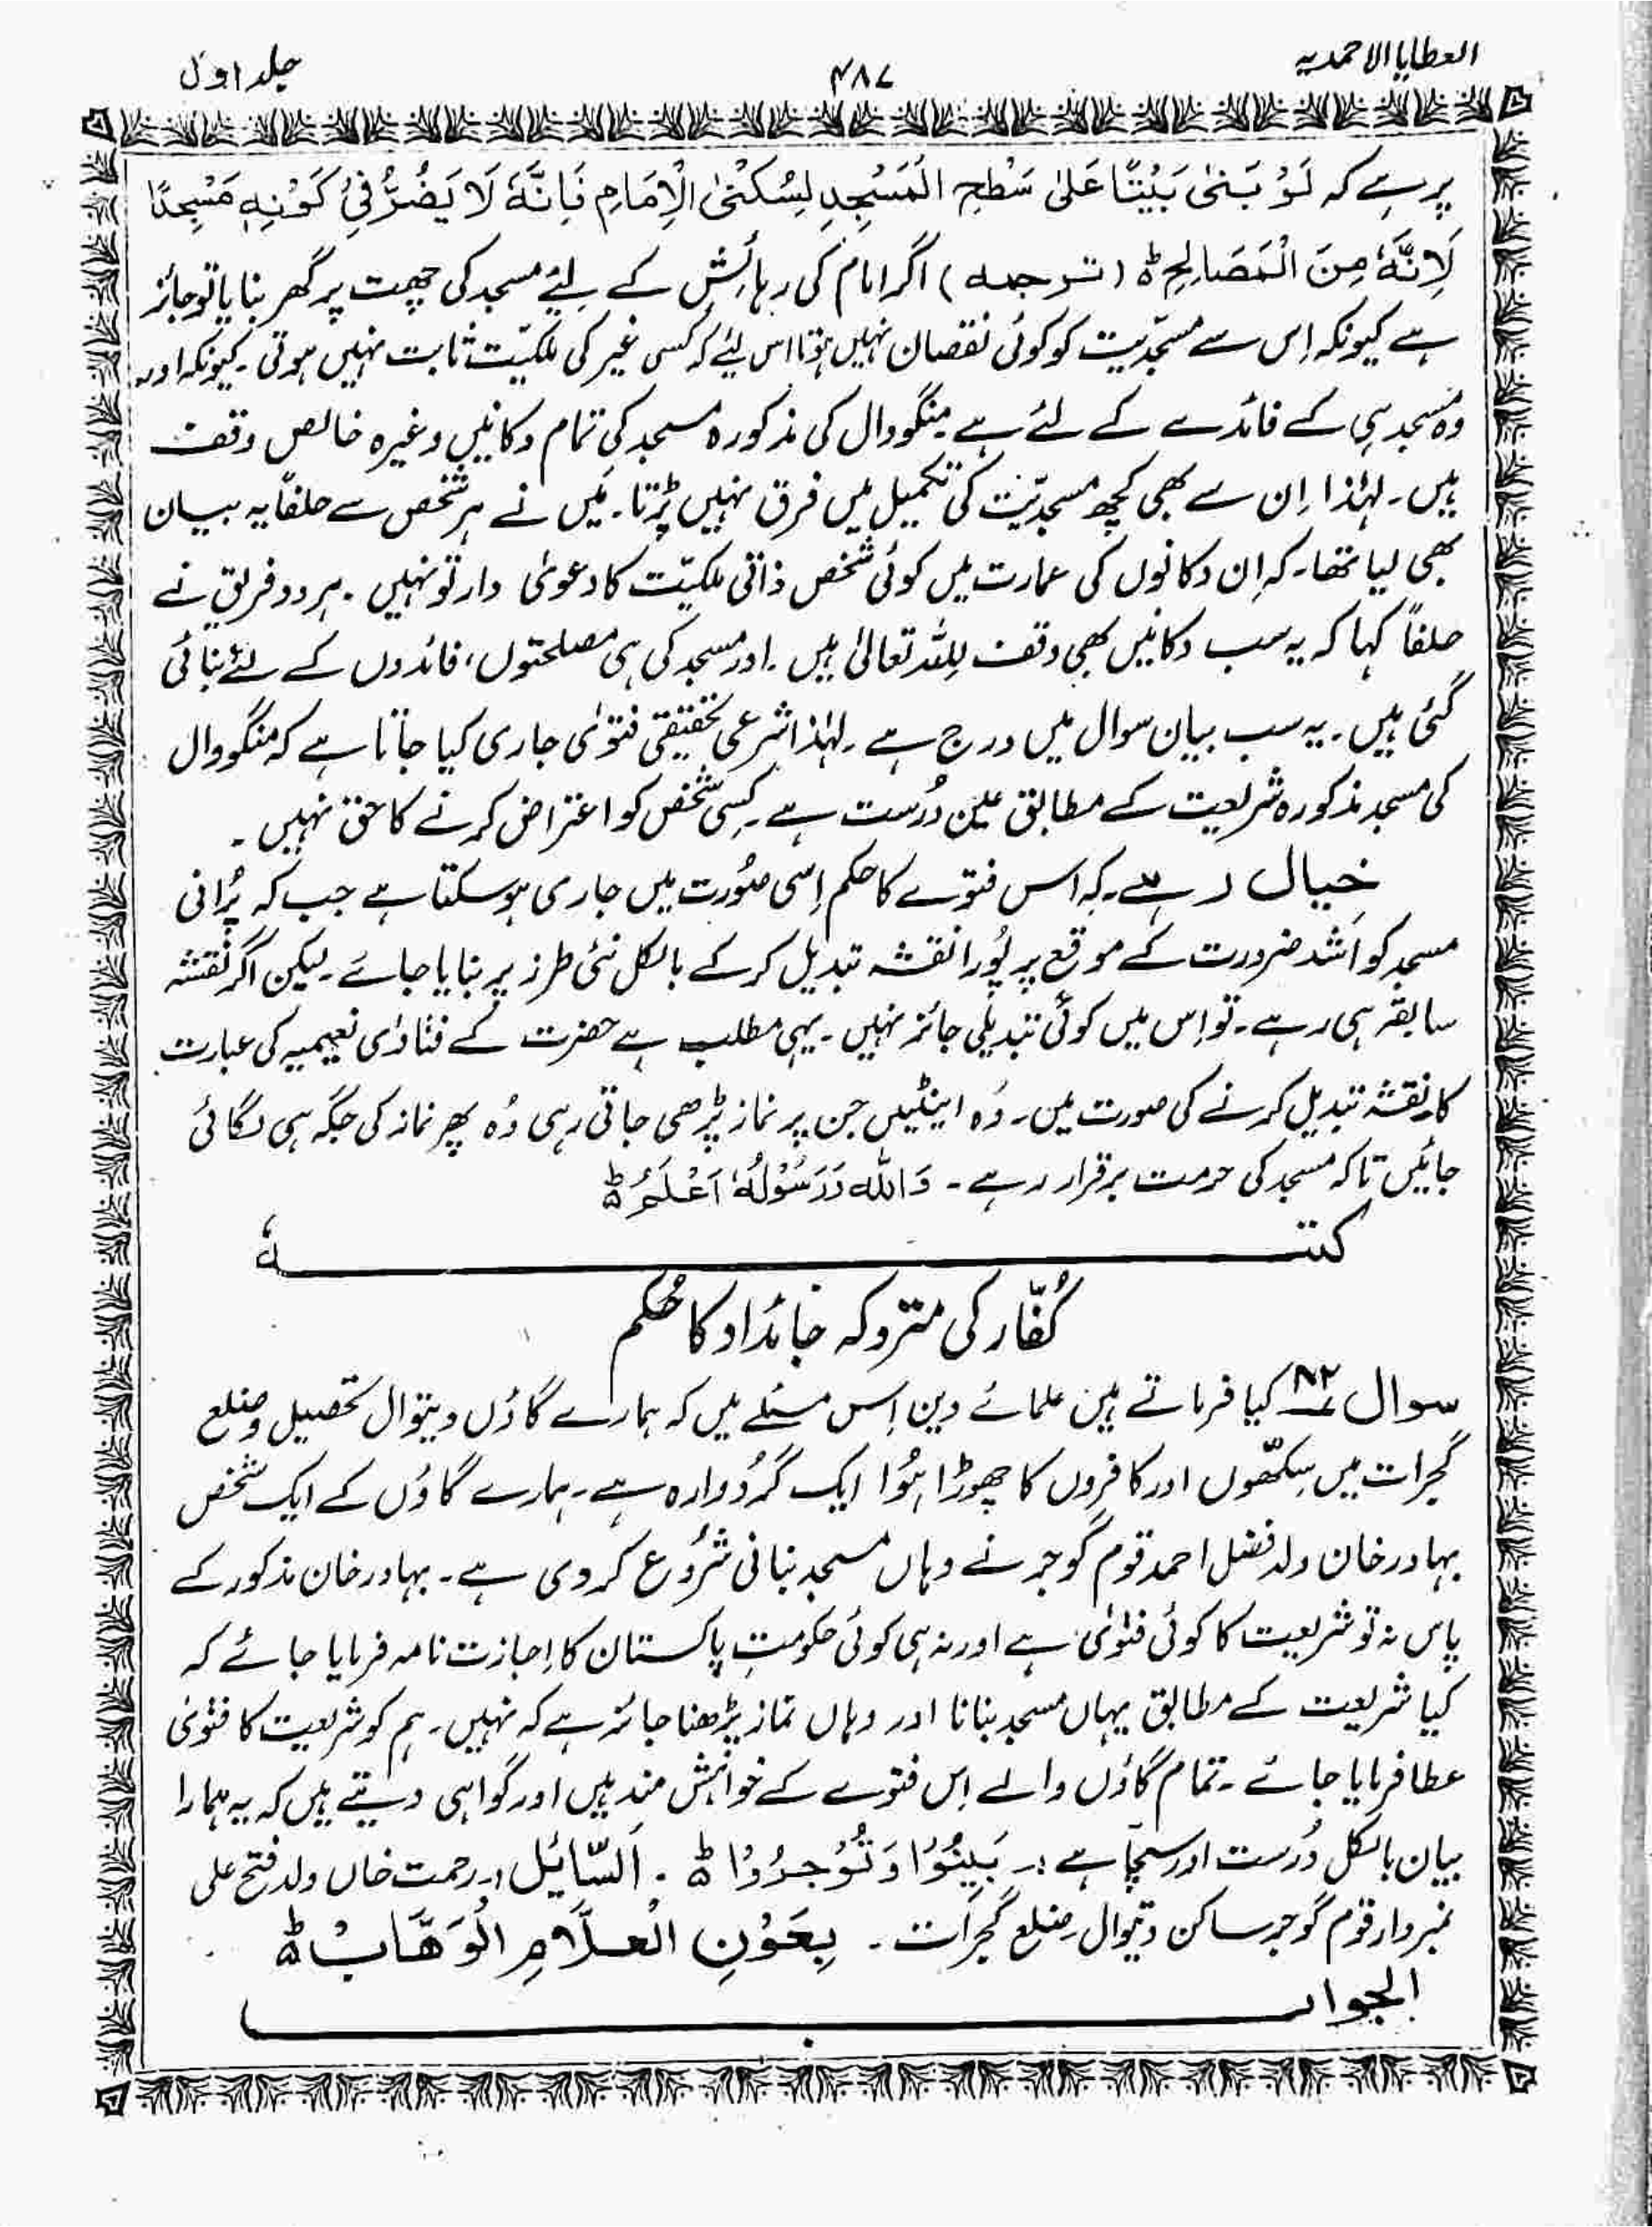 العطایا الاحمدیہ
۴۸۷
جلد اول
پر ہے کہ لَوْ بَنٰی بَیْتًا عَلیٰ سَطْحِ الْمَسْجِدِ لِسُکْنٰی الْاِمَامِ فَاِنَّہٗ لَا یَضُرُّ فِیْ کَوْنِہٖ مَسْجِدًا
لِاَنَّہٗ مِنَ الْمَصَالِحِ ؕ (ترجمہ) اگر امام کی رہائش کے لئے مسجد کی چھت پر گھر بنایا تو جائز
ہے کیونکہ اِس سے مسجدیت کو کوئی نقصان نہیں ہوتا اس لیئے کہ کسی غیر کی ملکیّت ثابت نہیں ہوتی۔ کیونکہ اور
وہ مسجد ہی کے فائدے کے لئے ہے منگووال کی مذکورہ مسجد کی تمام دکانیں وغیرہ خالص وقف
ہیں۔ لہٰذا اِن سے بھی کچھ مسجدیّت کی تکمیل میں فرق نہیں پڑتا۔ مَیں نے ہر شخص سے حلفاً یہ بیان
بھی لیا تھا۔ کہ اِن دکانوں کی عمارت میں کوئی شخص ذاتی ملکیّت کا دعویٰ دار تو نہیں۔ ہر دو فریق نے
حلفاً کہا کہ یہ سب دکانیں بھی وقف لِلّٰہ تعالیٰ ہیں۔ اور مسجد کی ہی مصلحتوں، فائدوں کے لئے بنائی
گئی ہیں۔ یہ سب بیان سوال میں درج ہے۔ لہٰذا شرعی تحقیقی فتویٰ جاری کیا جاتا ہے کہ منگووال
کی مسجد مذکورہ شریعت کے مطابق عین دُرست ہے۔ کِسی شخص کو اعتراض کرنے کا حق نہیں۔
خیال رہے۔ کہ اس فتوے کا حکم اِسی صُورت میں جاری ہو سکتا ہے جب کہ پُرانی
مسجد کو اَشد ضرورت کے موقع پر پُورا نقشہ تبدیل کر کے بالکل نئی طرز پر بنایا جائے۔ لیکن اگر نقشہ
سابقہ ہی رہے۔ تو اِس میں کوئی تبدیلی جائز نہیں۔ یہی مطلب ہے حضرت کے فتاوٰی نعیمیہ کی عبارت
کا۔ نقشہ تبدیل کرنے کی صورت میں۔ وُہ اینٹیں جن پر نماز پڑھی جاتی رہی وُہ پھر نماز کی جگہ ہی لگائی
جائیں تاکہ مسجد کی حرمت برقرار رہے۔ وَاللّٰہُ وَرَسُوْلُہٗ اَعْلَمُ ؕ
کتبــــــــہٗ
کُفّار کی متروکہ جائداد کا حُکم
سوال ۸۲ کیا فرماتے ہیں علمائے دین اِس مسئلے میں کہ ہمارے گاؤں دیتوال تحصیل و ضلع
گجرات میں سِکّھوں اور کافروں کا چھوڑا ہُوا ایک گُردوارہ ہے۔ ہمارے گاؤں کے ایک شخص
بہادر خان ولد فضل احمد قوم گوجر نے وہاں مسجد بنانی شروع کر دی ہے۔ بہادر خان مذکور کے
پاس نہ تو شریعت کا کوئی فتوٰی ہے اور نہ ہی کوئی حکومتِ پاکستان کا اِجازت نامہ فرمایا جائے کہ
کیا شریعت کے مطابق یہاں مسجد بنانا اور وہاں نماز پڑھنا جائز ہے کہ نہیں۔ ہم کو شریعت کا فتویٰ
عطا فرمایا جائے۔ تمام گاؤں والے اِس فتوے کے خواہش مند ہیں اور گواہی دیتے ہیں کہ یہ ہمارا
بیان بالکل دُرست اور سچّا ہے:۔ بَیِّنُوْا وَتُوْجَرُوْا ؕ۔ اَلسَّائِل:۔ رحمت خاں ولد فتح علی
نمبردار قوم گوجر ساکن دتیوال۔ ضلع گجرات۔ بِعَوْنِ الْعَلَّامِ الْوَھَّابْ ؕ
الجواب